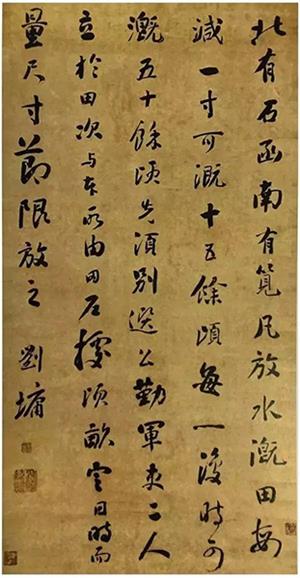 北有石函南有筧凡放水溉田每
減一寸可溉十五餘頃每一復時可
溉五十餘頃先須別選公勤軍吏二人
立於田次与本所由田據頃畝定日時而
量尺寸節限放之 劉墉